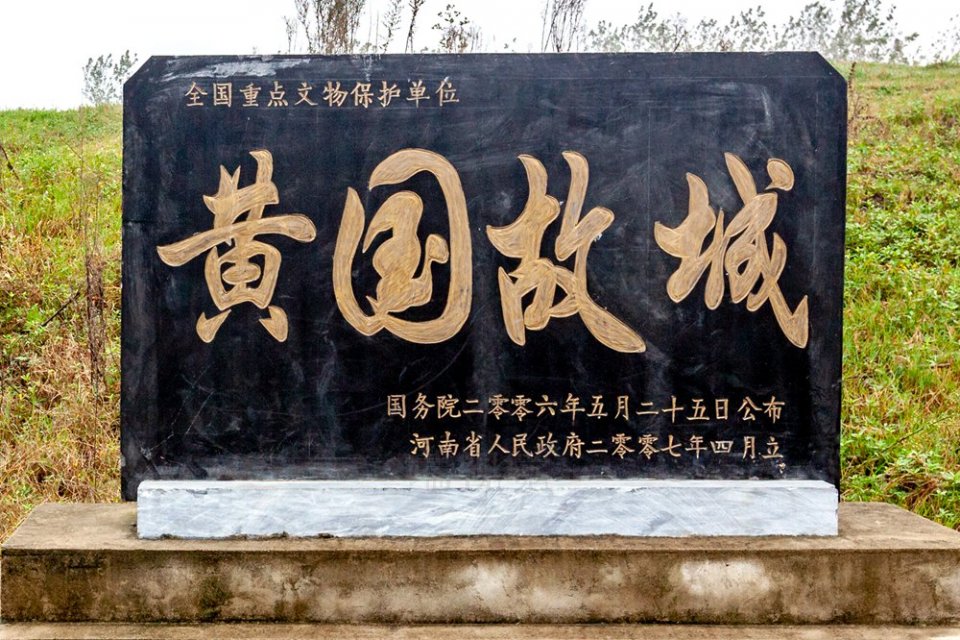 全国重点文物保护单位
黄国故城
国务院二零零六年五月二十五日公布
河南省人民政府二零零七年四月立